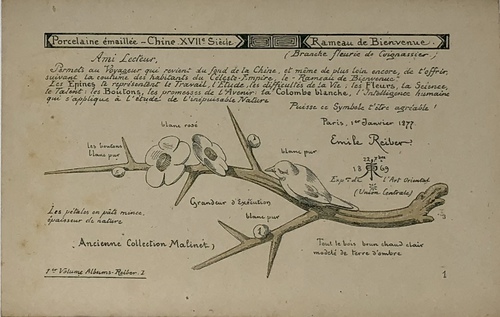 Porcelaine émaillée – Chine XVIIe Siècle
Rameau de Bienvenue.
(Branche fleurie de Coignassier)
Ami Lecteur,
Permets au Voyageur qui revient du fond de la Chine, et même de plus loin encore, de t'offrir,
suivant la coutume des habitants du Céleste-Empire, le "Rameau de Bienvenue"
Les Épines te représentent le Travail, l'Étude, les difficultés de la Vie; les Fleurs, la Science,
le Talent; les Boutons, les promesses de l'Avenir; la Colombe blanche, l'Intelligence humaine
qui s'applique à l'étude de l'inépuisable Nature.
Puisse ce Symbole t'être agréable!
Paris, 1er Janvier 1877.
Emile Reiber.
blanc rosé
les boutons
blanc pur
blanc pur
1869
Expon de l'Art Oriental
(Union Centrale)
Grandeur d'Exécution
blanc pur
Les pétales en pâte mince,
épaisseur de nature
(Ancienne Collection Malinet)
Tout le bois brun chaud clair
modelé de terre d'ombre
1er Volume Albums-Reiber. 1
1